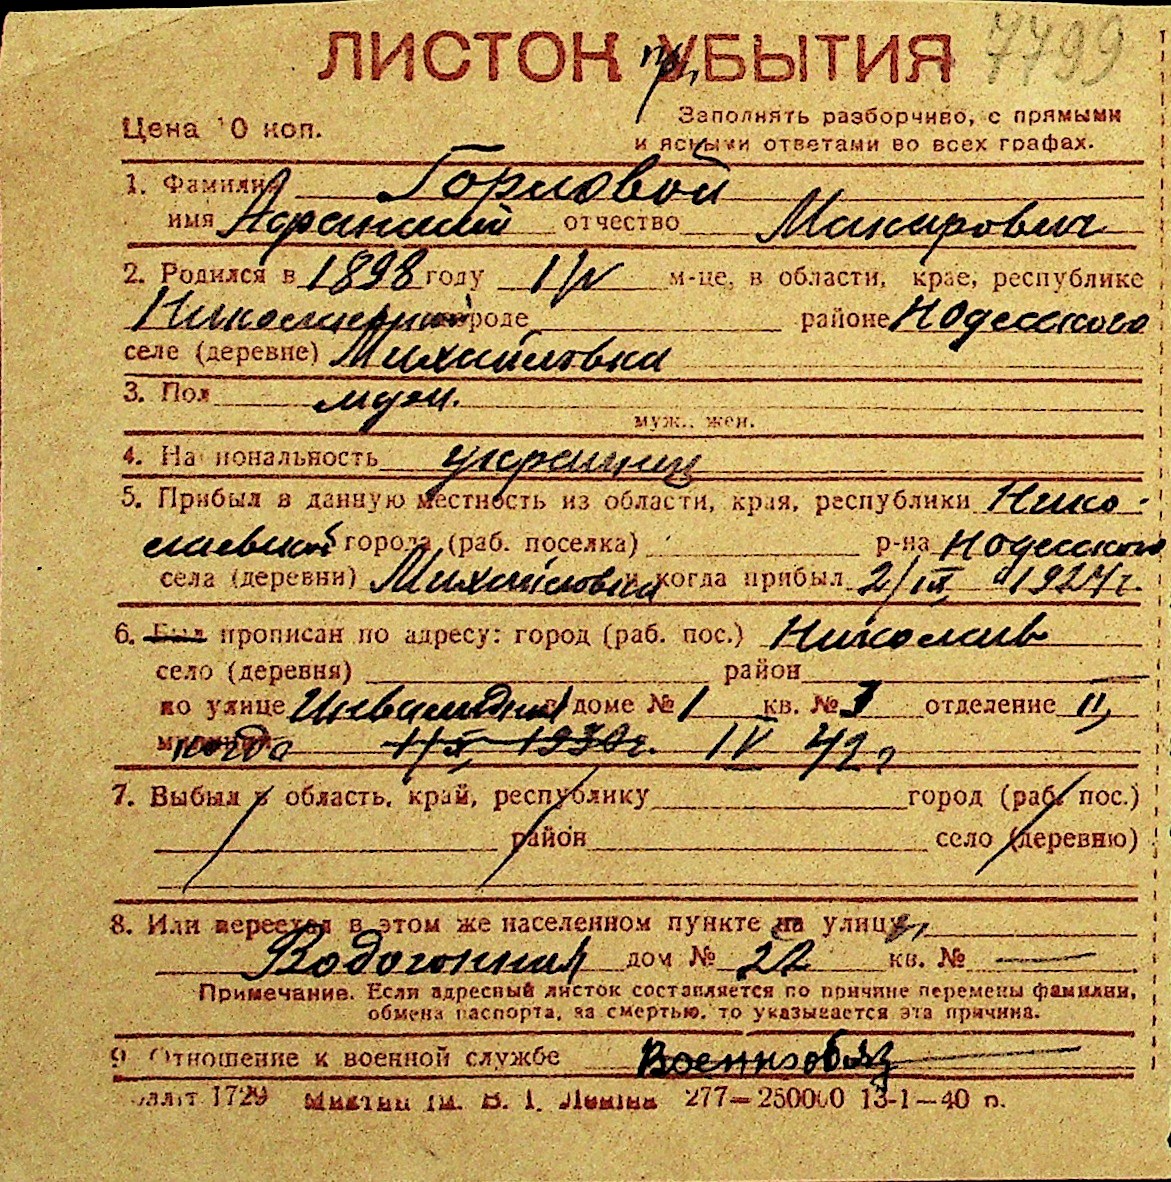 ЛИСТОК УБЫТИЯ 7799
пр.
Цена 10 коп.
Заполнять разборчиво, с прямыми
и ясными ответами во всех графах.
1. Фамилия Горловой
имя Афанасий отчество Макарович
2. Родился в 1898 году 1/IV м-це, в области, крае, республике
Николаевской городе районе Н Одесского
селе (деревне) Михайловка
3. Пол муж.
муж., жен.
4. Национальность украинец
5. Прибыл в данную местность из области, края, республики Нико-
лаевской города (раб. поселка) р-на Н Одесского
села (деревни) Михайловка и когда прибыл 2/IX 1924 г.
6. Был прописан по адресу: город (раб. пос.) Николаев
село (деревня) район
по улице Инвалидная в доме № 1 кв. № 3 отделение II,
милиции когда 1930 г. IV 42 г
7. Выбыл в область, край, республику город (раб. пос.)
район село (деревню)
8. Или переехал в этом же населенном пункте на улицу
Водогонная дом № 22 кв. № —
Примечание. Если адресный листок составляется по причине перемены фамилии,
обмена паспорта, за смертью, то указывается эта причина.
9 Отношение к военной службе Военнообяз
1729 277—250000 13-1—40 п.